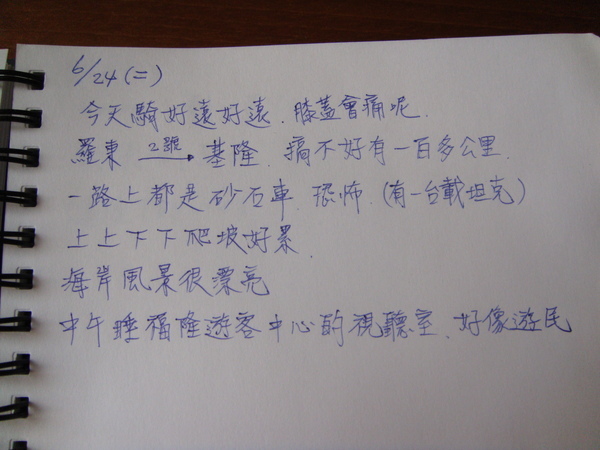 6/24(二)
今天騎好遠好遠.膝蓋會痛呢.
羅東 2號→ 基隆.搞不好有一百多公里.
一路上都是砂石車.恐怖.(有一台載坦克)
上上下下爬坡好累.
海岸風景很漂亮
中午睡福隆遊客中心的視聽室.好像遊民